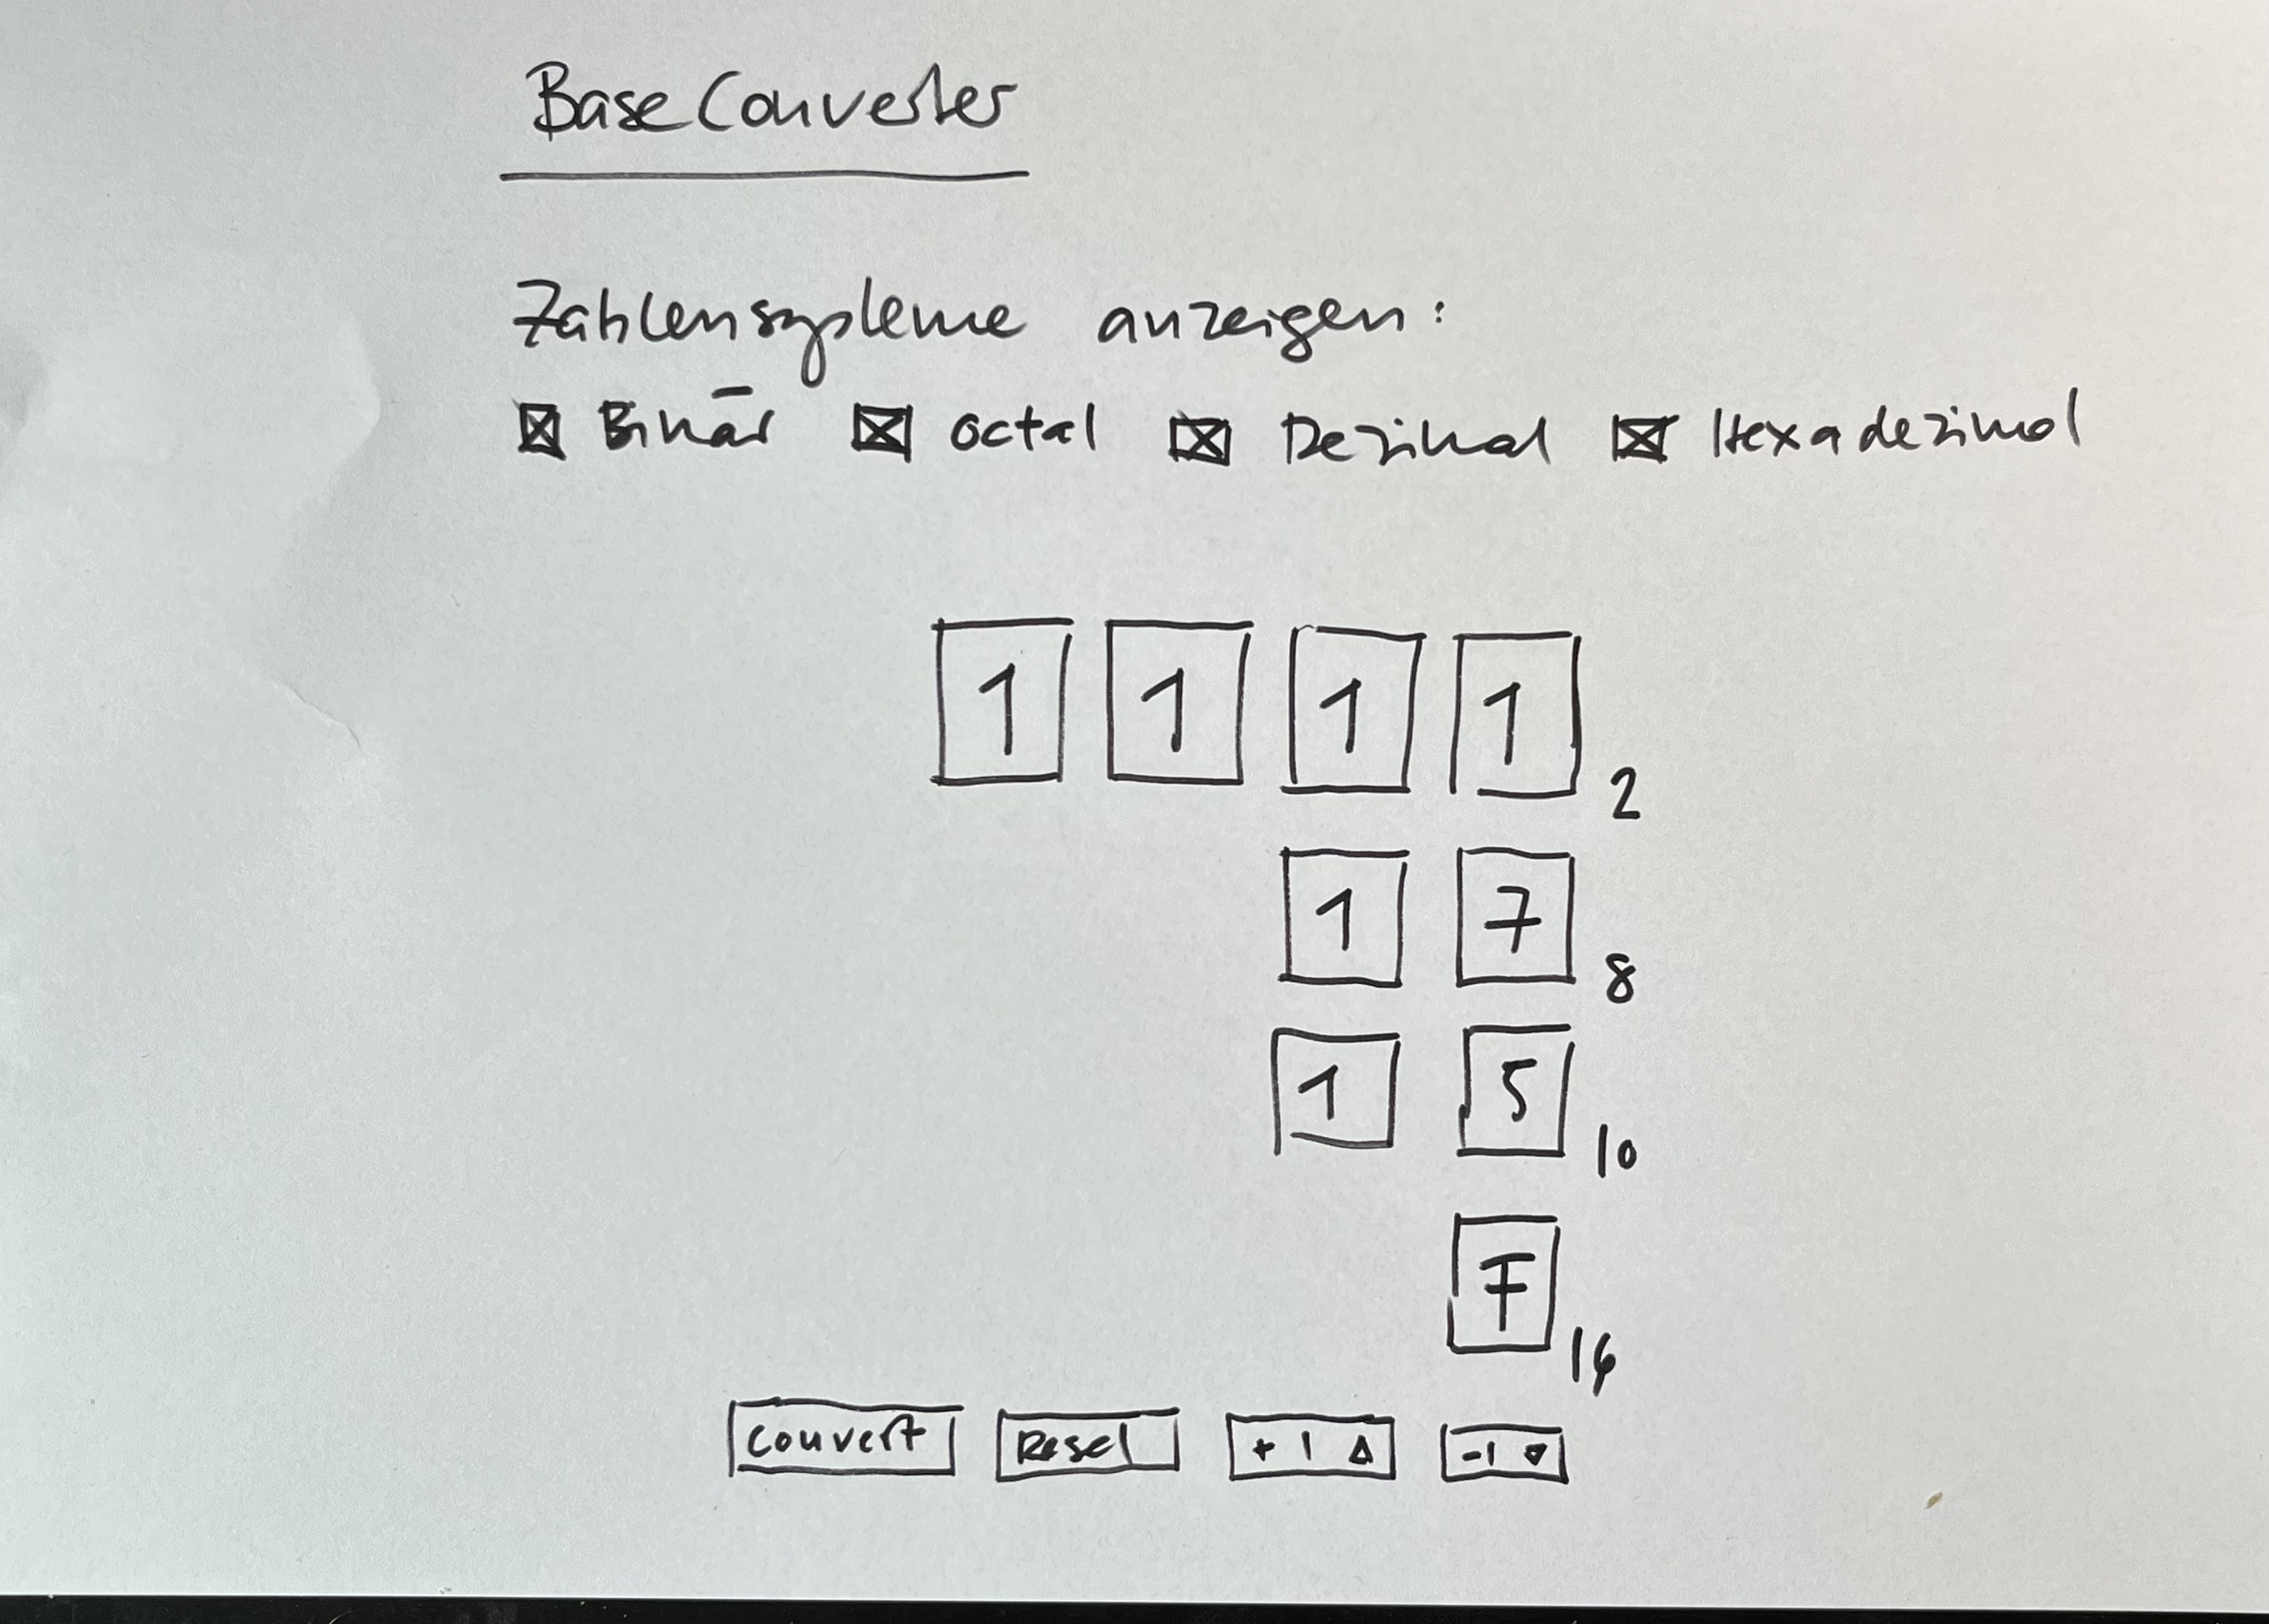 Base Converter
Zahlensysteme anzeigen:
☒ Binär ☒ Octal ☒ Dezimal ☒ Hexadezimal
1 1 1 1 2
1 7 8
1 5 10
F 16
Convert Reset +1 △ -1 ▽